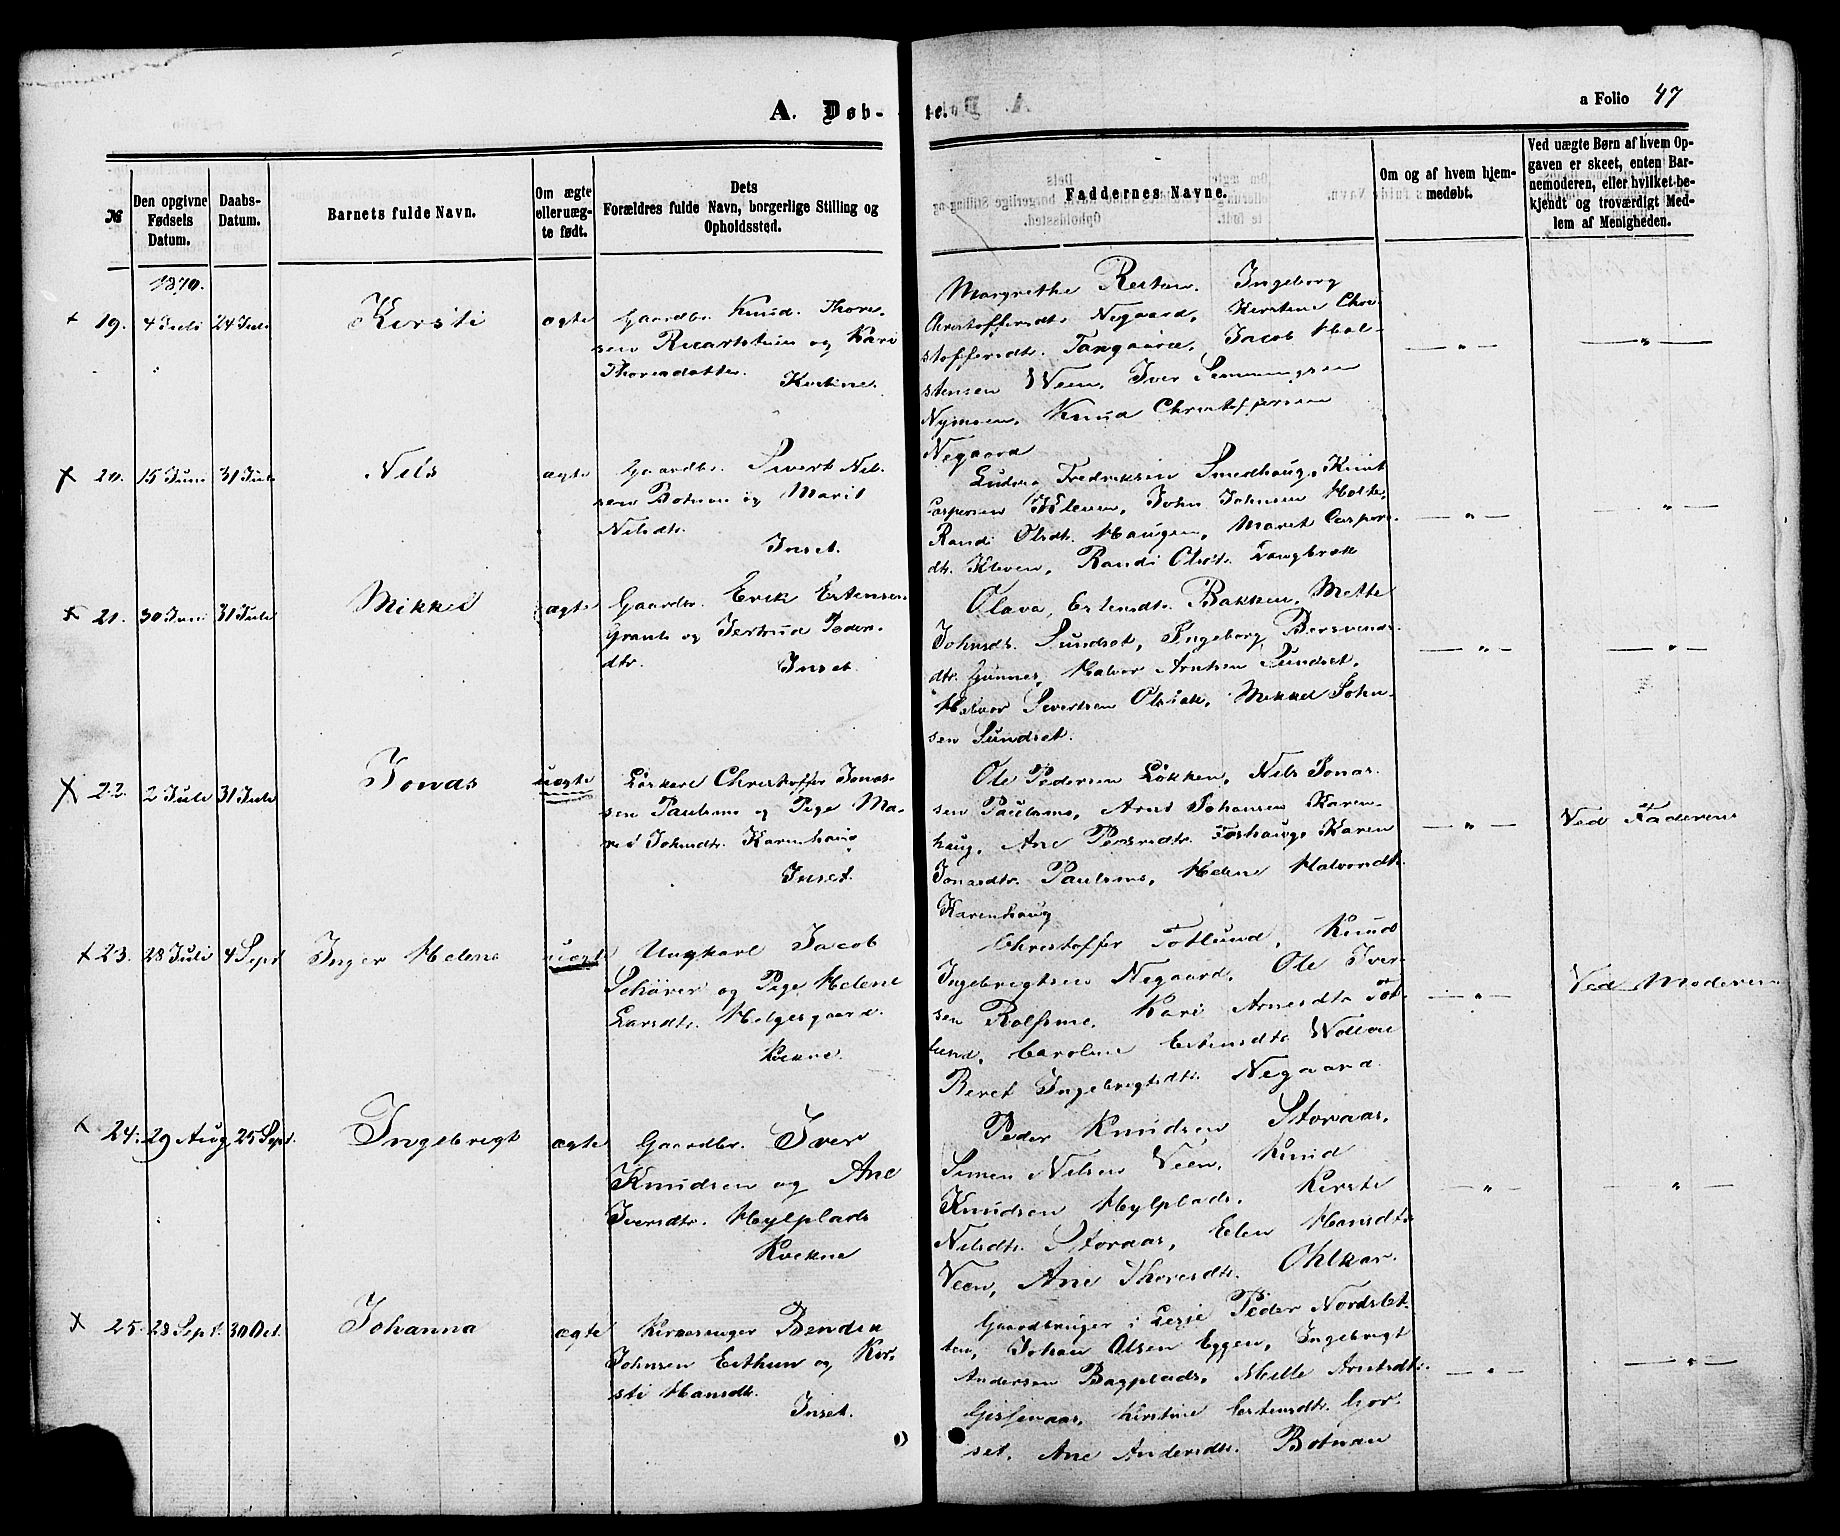 A. Døb-
te.
a Folio 47
№
Den opgivne Fødsels Datum.
Daabs-Datum.
Barnets fulde Navn.
Om ægte eller uæg-te født.
Dets Forældres fulde Navn, borgerlige Stilling og Opholdssted.
Faddernes Navne.
Om og af hvem hjem-medøbt.
Ved uægte Børn af hvem Op-gaven er skeet, enten Bar-nemoderen, eller hvilket be-kjendt og troværdigt Med-lem af Menigheden.
1870.
19. 4 Juli 24 Juli Kirsti ægte
Gaardbr. Knud Thore-
sen og Kari
Thoresdatter.
Margrethe Ingeborg
Christoffersdt. Negaard, Kirstine Chri-
stoffersdt. Jacob Hol-
stensen Veen, Iver
Nymoen, Knud Christoffersen
Negaard
— " — — " —
20. 15 Juni 31 Juli Nils ægte
Gaardbr. Sivert Nil-
sen og Marit
Nilsdtr.
Inset.
Fredriksen Smedhaug,
Kleven, John Johnsen Holte,
Randi Olsdt. Haugen, Maret Caspers-
dt. Kleven, Randi Olsdt.
— " — — " —
21. 30 Juni 31 Juli Mikkel ægte
Gaardbr. Erik Estensen
og Jertrud Peders-
dtr.
Inset.
Olava Estensdt. Bakken, Mette
Johnsdt. Sundset, Ingeborg
dtr. Gunnes, Halvor Arntsen Sundset,
Halvor Sivertsen Mikkel John-
sen Sundset.
— " — — " —
22. 2 Juli 31 Juli Jonas uægte
Christoffer Jonas-
sen Paulsmo og Pige Ma-
rit Johnsdt. Karenhaug
Inset.
Ole Pedersen Løkken, Nils Jonas-
sen Paulsmo, Arnt Johansen Karen-
haug, Ane Karen
Jonasdtr. Paulsmo, Helene Halvorsdt.
Karenhaug
— " — Ved Faderen
23. 28 Juli 4 Sept Inger Helene uægte
Ungkarl Jacob
Schører og Pige Helene
Larsdt. Helgesgaard.
Kvikne.
Christoffer Totlund, Knud
Ingebrigtsen Negaard, Ole Iver-
sen Kari Arnesdt. Tot-
lund, Caroline Estensdt.
Beret Ingebrigtsdt. Negaard.
— " — Ved Moderen
24. 29 Aug 25 Sept. Ingebrigt ægte
Gaardbr. Iver
Knudsen og Ane
Iversdtr. Hylplads
Kvikne
Peder Knudsen Storaas,
Simen Nilsen Veen, Knud
Knudsen Hylplads. Kirsti
Nilsdt. Storaas, Elen Hansdt.
Veen, Ane Thoresdt.
— " — — " —
25. 28 Sept. 30 Oct. Johanna ægte
Kirkesanger Bendik
Johnsen Esthun og Kir-
sti Hansdt.
Inset.
Gaardbruger i Peder Nordslet-
ten, Johan Olsen Eggen, Ingebrigt
Andersen Bagplads, Arntsdt.
Kirstine Estensdt. Gor-
set, Ane Andersdt. Botnan
— " — — " —